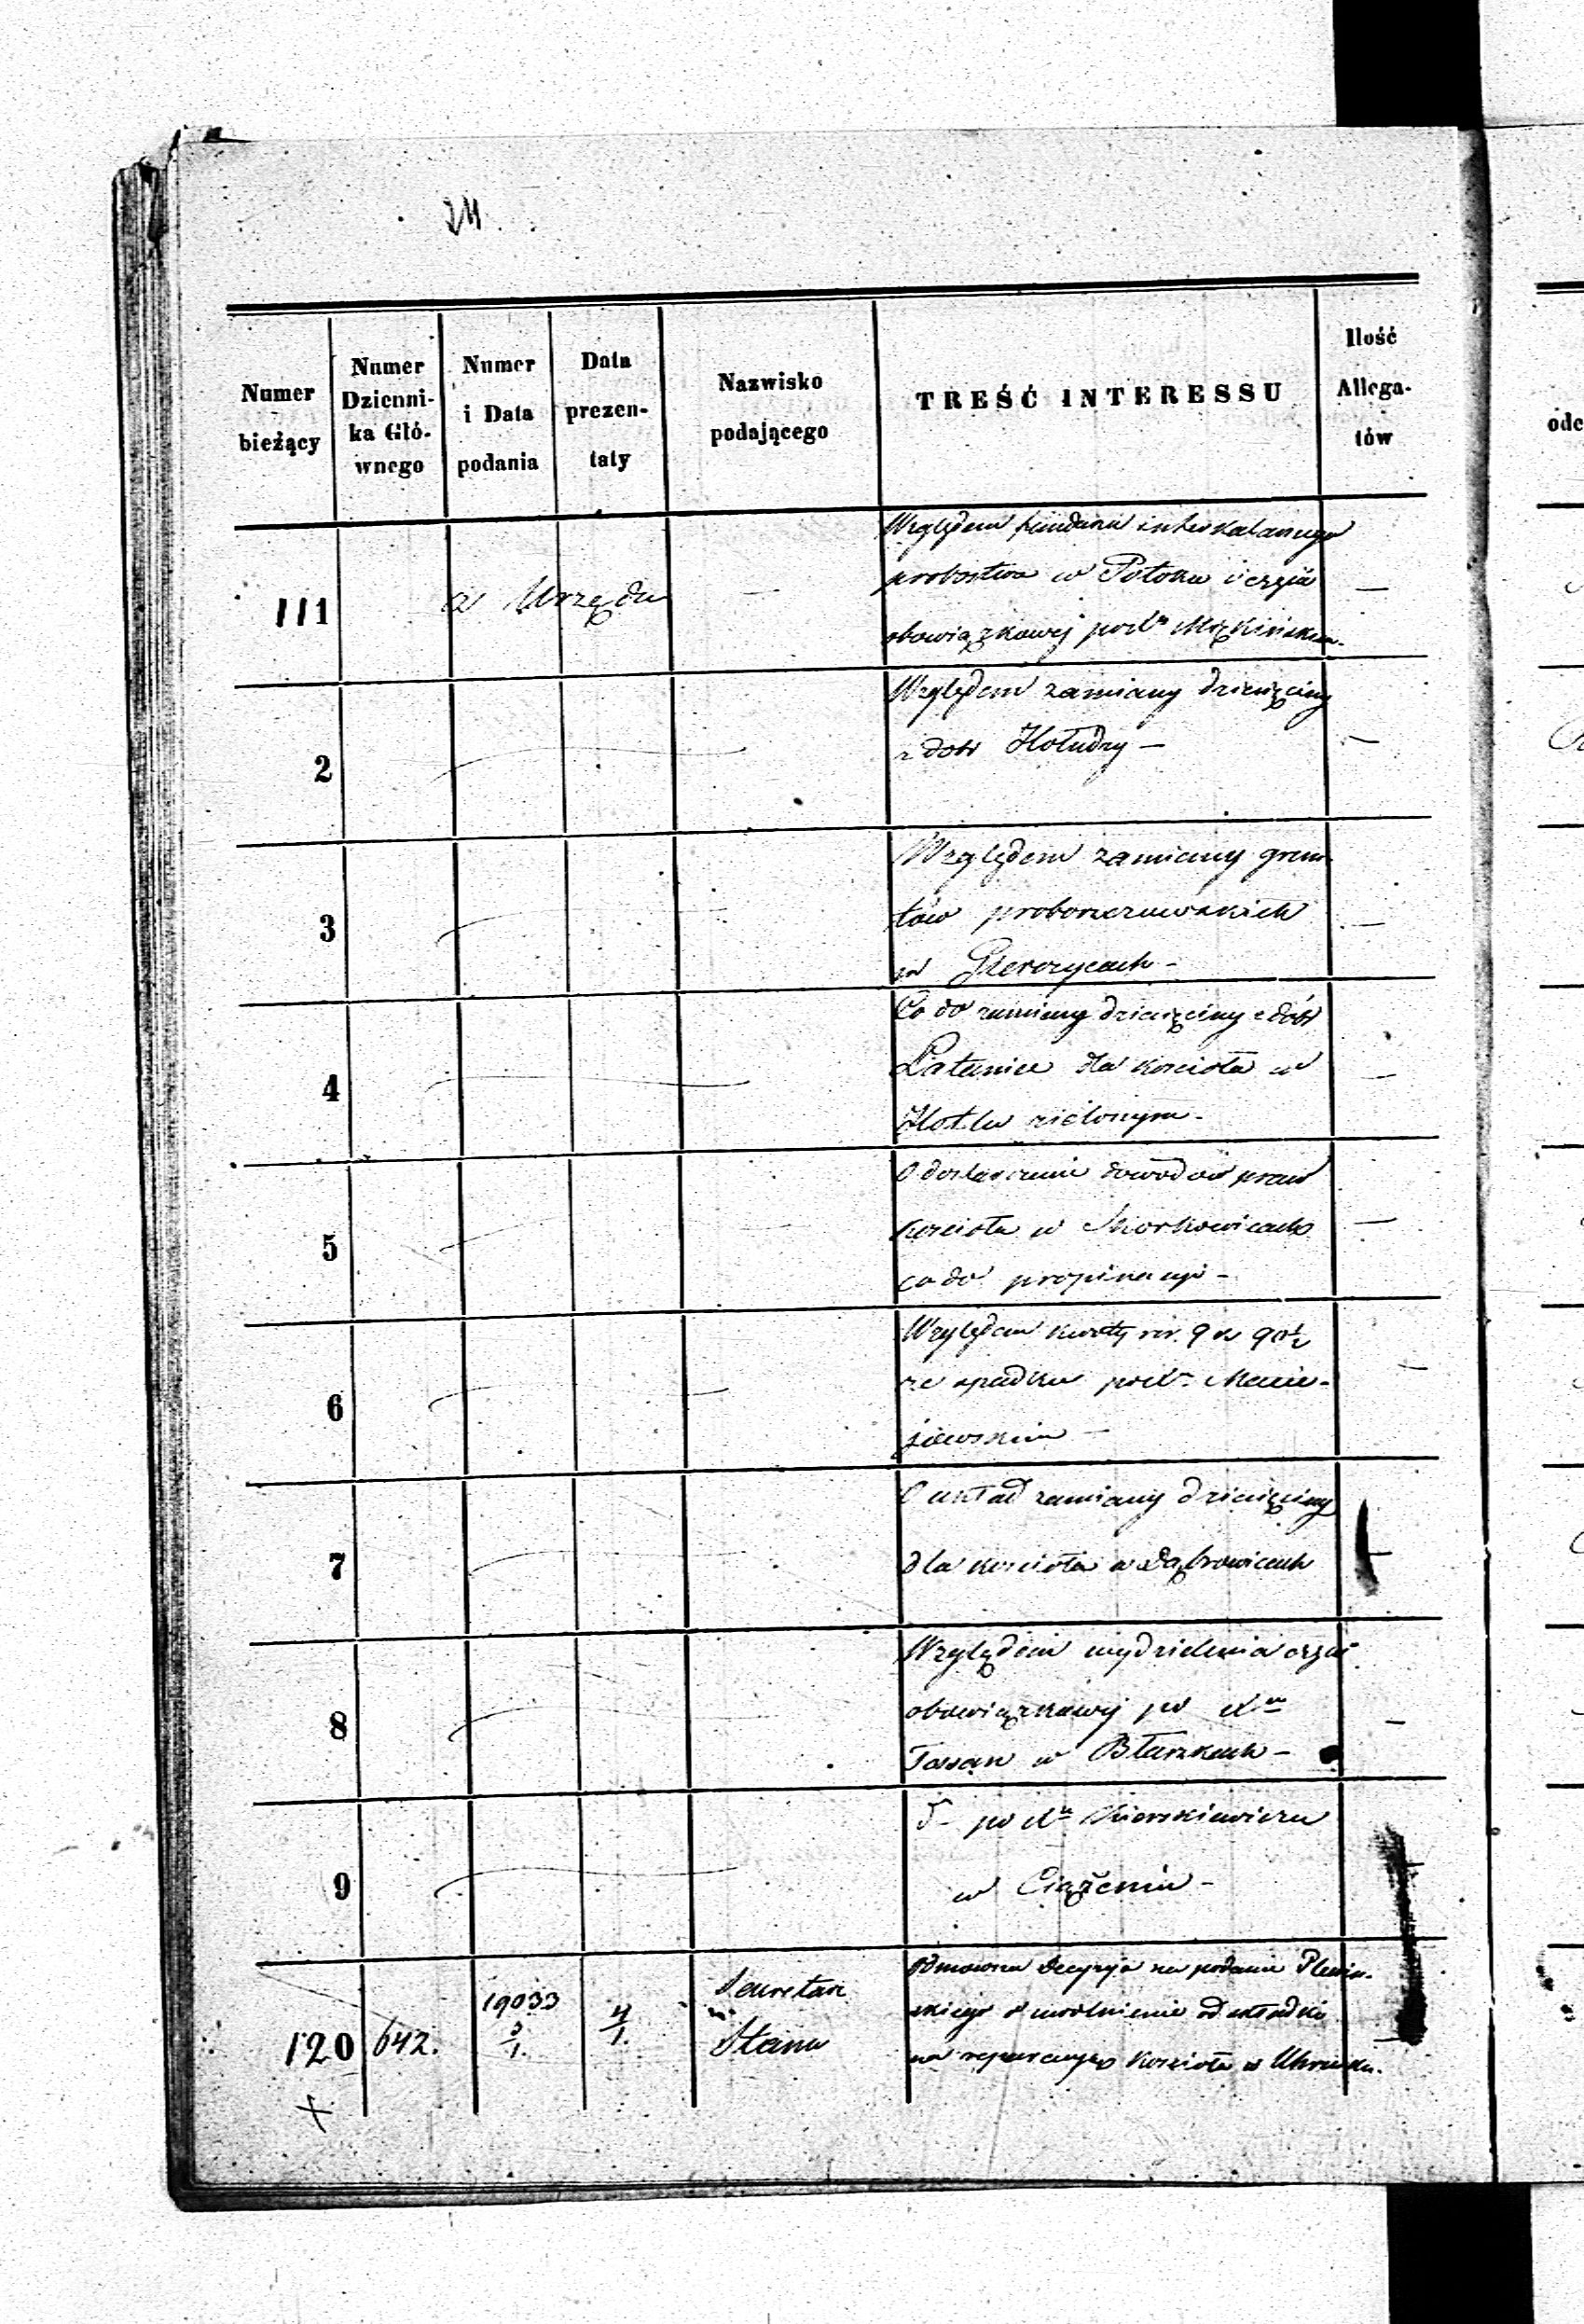 Numer bieżący
Numer Dzienni-ka Głó-wnego
Numer i Data podania
Data prezen-taty
Nazwisko podającego
TREŚĆ INTERESSU
Ilość Allega-tów
odc
111
z Urzędu
—
Względem funduszu interkalarnego
probostwa w Potoku i części
obowiązkowej po
—
2
Względem zamiany dziesięciny
z dóbr Hołudzy —
—
3
Względem zamiany grun-
tów proboszczowskich
w Gierczycach -
—
4
Co do zamiany dziesięciny z dóbr
dla kościoła w
Kotlu zielonym -
—
5
O dostarczenie dowodów praw
kościoła w Skorkowicach
co do propinacyi -
—
6
Względem kwoty rsr. 9 k 90½
ze spadku po Macie-
jewskim —
—
7
O układ zamiany dziesięciny
dla kościoła w Dąbrowicach
—
8
Względem wydzielenia części
obowiązkowej po
w Błaszkach -
—
9
w Ciążeniu -
120
642.
19033
3/1.
4/1.
Sekretarz
Stanu
Odmowna decyzyja na podanie
o uwolnienie od składki
na reparacyją kościoła w